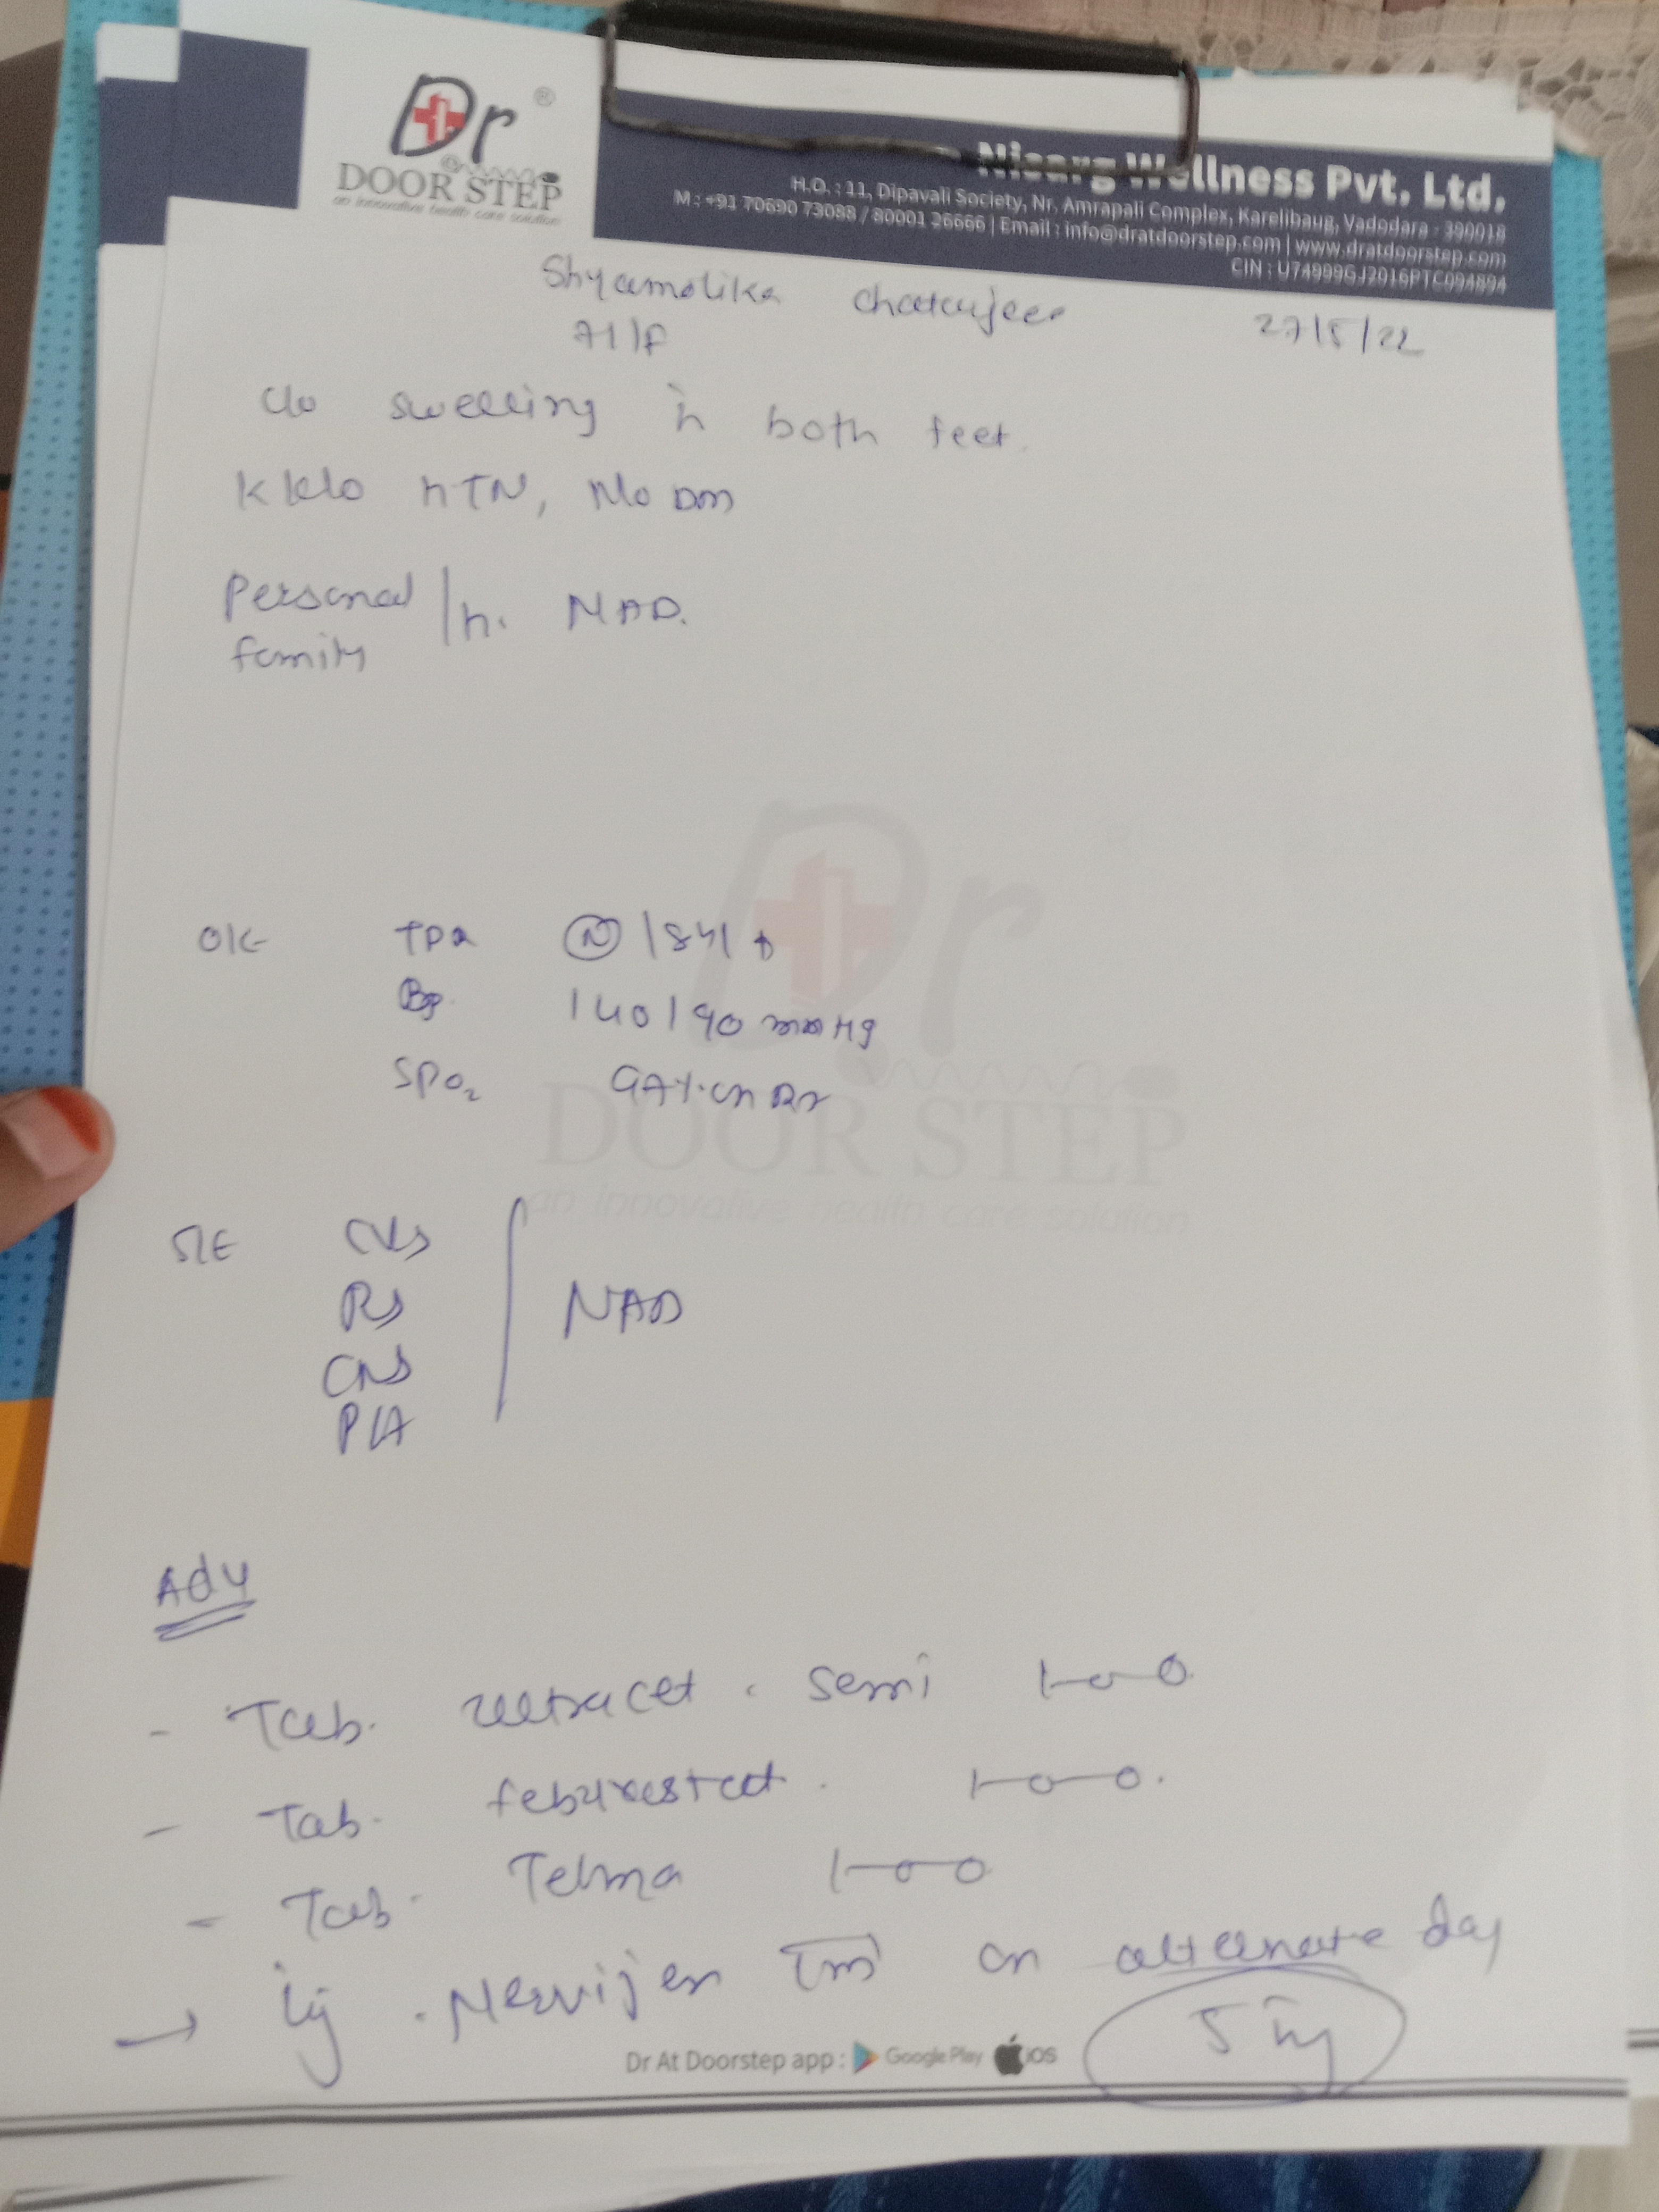 Dr ®
@
DOOR STEP
an innovative health care solution
Nisarg Wellness Pvt. Ltd.
H.O. : 11, Dipavali Society, Nr. Amrapali Complex, Karelibaug, Vadodara - 390018
M : +91 70690 73088 / 80001 26666 | Email : info@dratdoorstep.com | www.dratdoorstep.com
CIN : U74999GJ2016PTC094894
Shyamolika Chaterjee
71/F
27/5/22
C/o swelling in both feet.
K/c/o HTN, N/o DM
Personal
family /h. NAD.
O/E TPR (N) /84/
BP 140/90 mmHg
SPO2 on RA
S/E CVS
RS
CNS
P/A
NAD
Dr
DOOR STEP
an innovative health care solution
Adv
- Tab. ultracet semi 1-0-0
- Tab. feburestat 1-0-0.
- Tab. Telma 1-0-0
→ Inj. Nervijen IM on alternate day
5 inj
Dr At Doorstep app : Google Play iOS